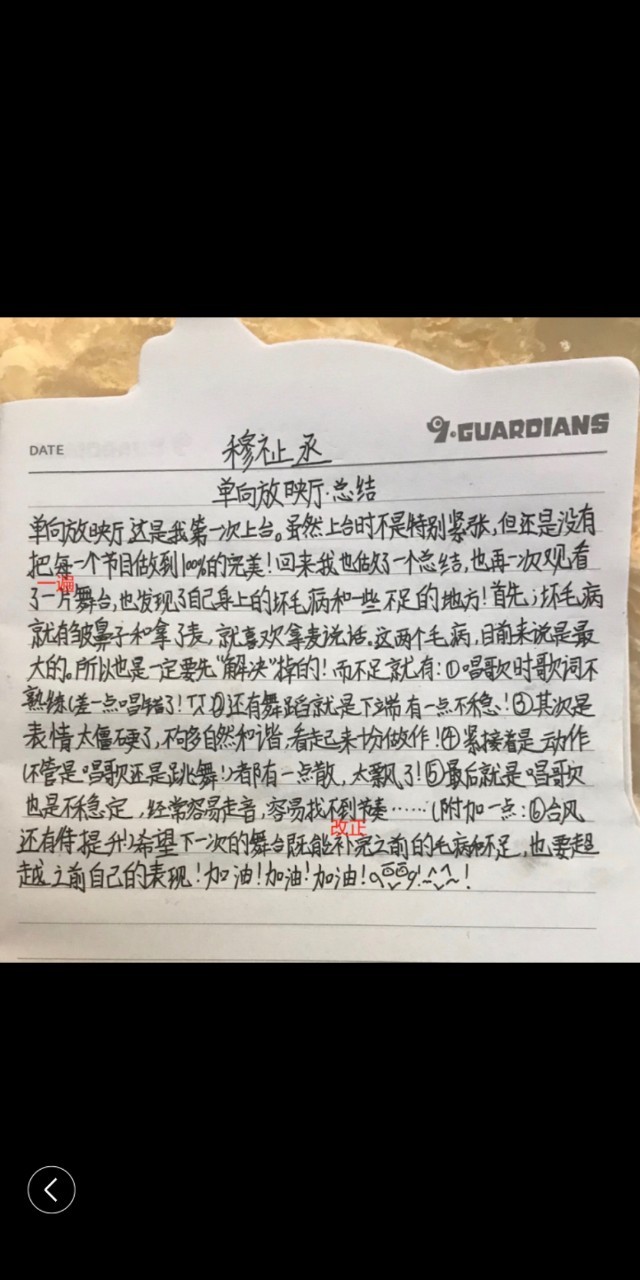 9·GUARDIANS
DATE
穆祉丞
单向放映厅·总结
单向放映厅这是我第一次上台。虽然上台时不是特别紧张,但还是没有
把每一个节目做到100%的完美!回来我也做了一个总结,也再一次观看
一遍
了一片舞台,也发现了自己身上的坏毛病和一些不足的地方!首先;坏毛病
就有皱鼻子和拿了麦,就喜欢拿麦说话。这两个毛病,目前来说是最
大的。所以也是一定要先“解决”掉的!而不足就有:①唱歌时歌词不
熟练(差一点唱错了!)②还有舞蹈就是下端有一点不稳!③其次是
表情太僵硬了,不够自然和谐,看起来十分做作!④紧接着是动作
(不管是唱歌还是跳舞!)都有一点散,太飘了!⑤最后就是唱歌
也是不稳定,经常容易走音,容易找不到节奏……(附加一点:⑥台风
改正
还有待提升)希望下一次的舞台既能补完之前的毛病和不足,也要超
越之前自己的表现!加油!加油!加油!